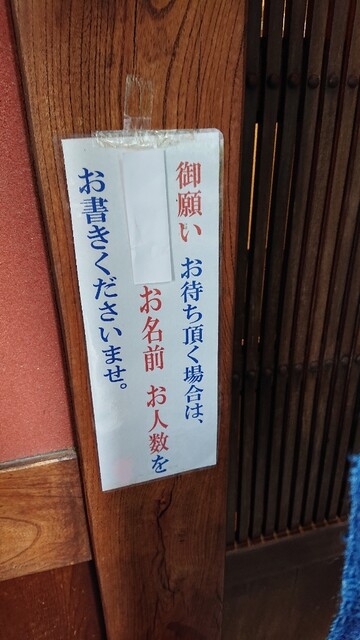 御願い お待ち頂く場合は、
お名前 お人数を
お書きくださいませ。